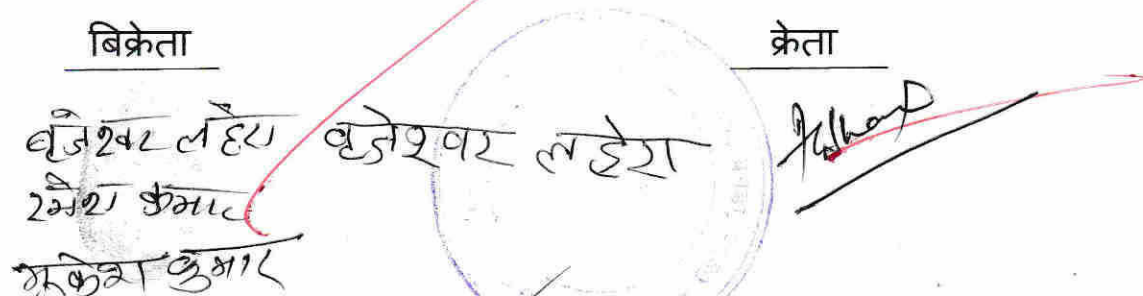 बिक्रेता क्रेता
बृजेश्वर लहेरा बृजेश्वर लहेरा
रमेश कुमार
मुकेश कुमार